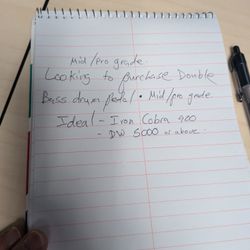 Mid/Pro grade
Looking to purchase Double
Bass drum pedal • Mid/pro grade
Ideal - Iron Cobra 900
- DW 5000 or above.